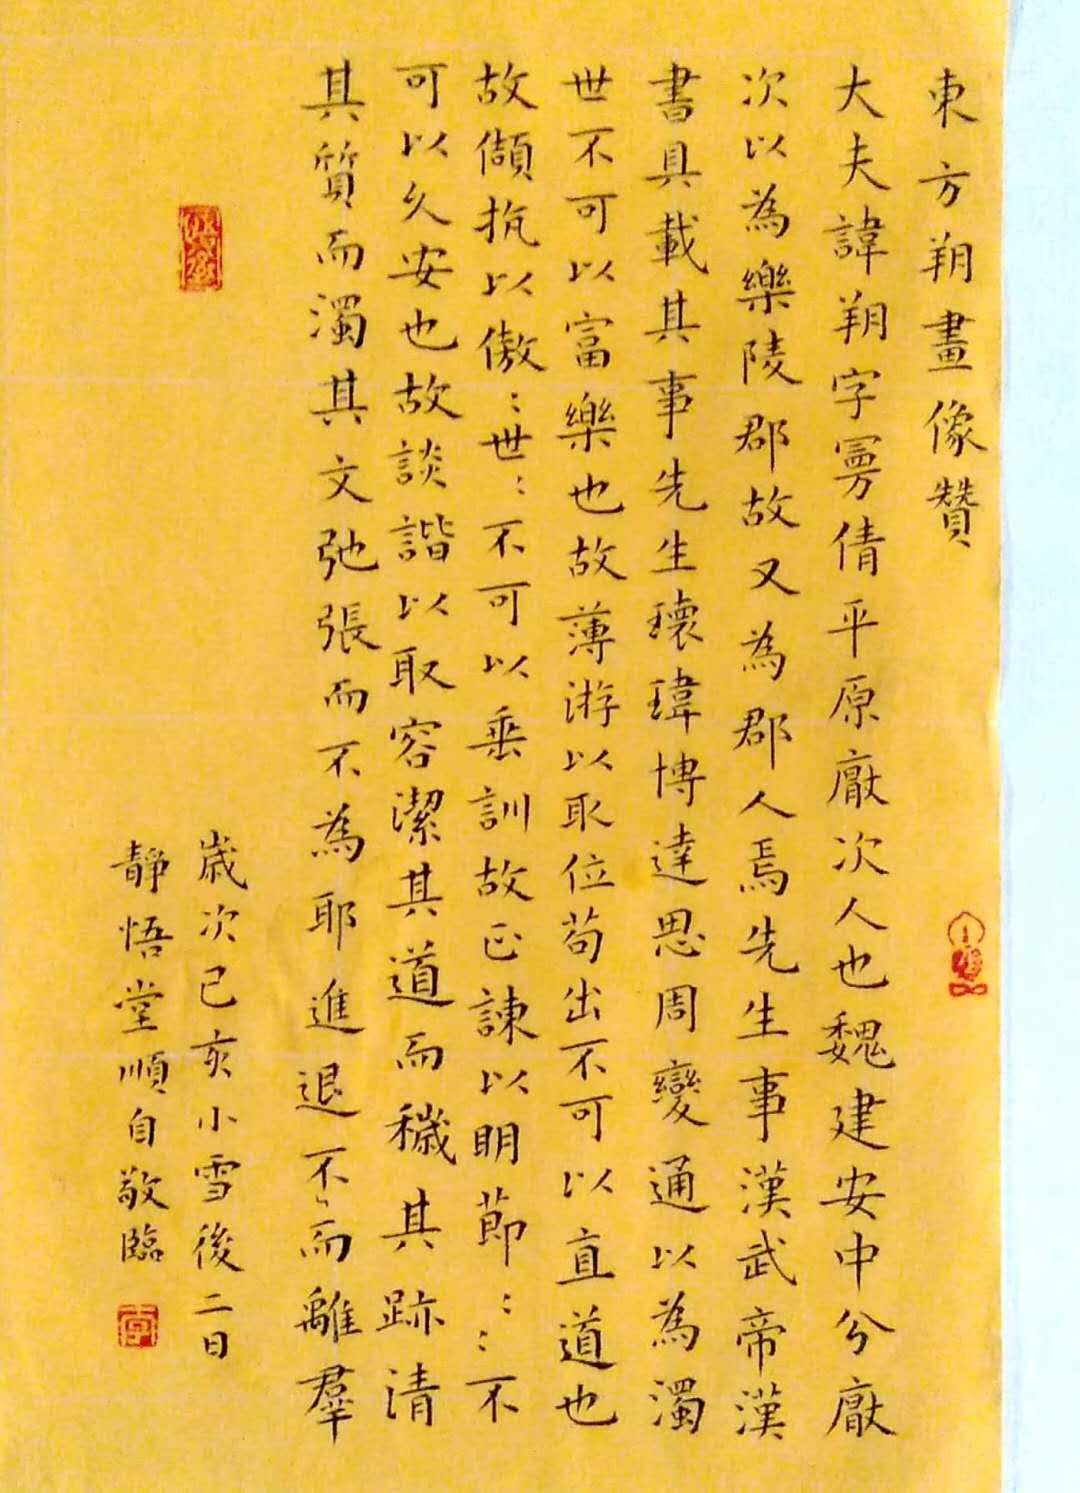 東方朔畫像贊
大夫諱朔字曼倩平原厭次人也魏建安中分厭
次以為樂陵郡故又為郡人焉先生事漢武帝漢
書具載其事先生瓌瑋博達思周變通以為濁
世不可以富樂也故薄游以取位苟出不可以直道也
故頡抗以傲：世：不可以垂訓故正諫以明節：：不
可以久安也故談諧以取容潔其道而穢其跡清
其質而濁其文弛張而不為耶進退不、而離羣
歲次己亥小雪後二日
靜悟堂順自敬臨